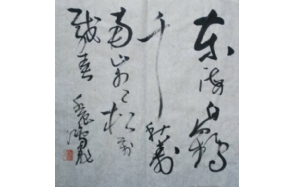 东海白鹤
千秋寿
南山青松万
载春